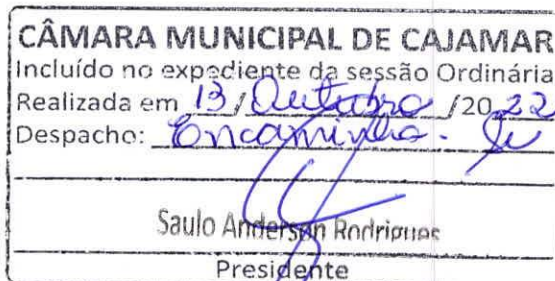 CÂMARA MUNICIPAL DE CAJAMAR
Incluído no expediente da sessão Ordinária
Realizada em 13 / Outubro /20 22
Despacho: Encaminha-se
Saulo Anderson Rodrigues
Presidente